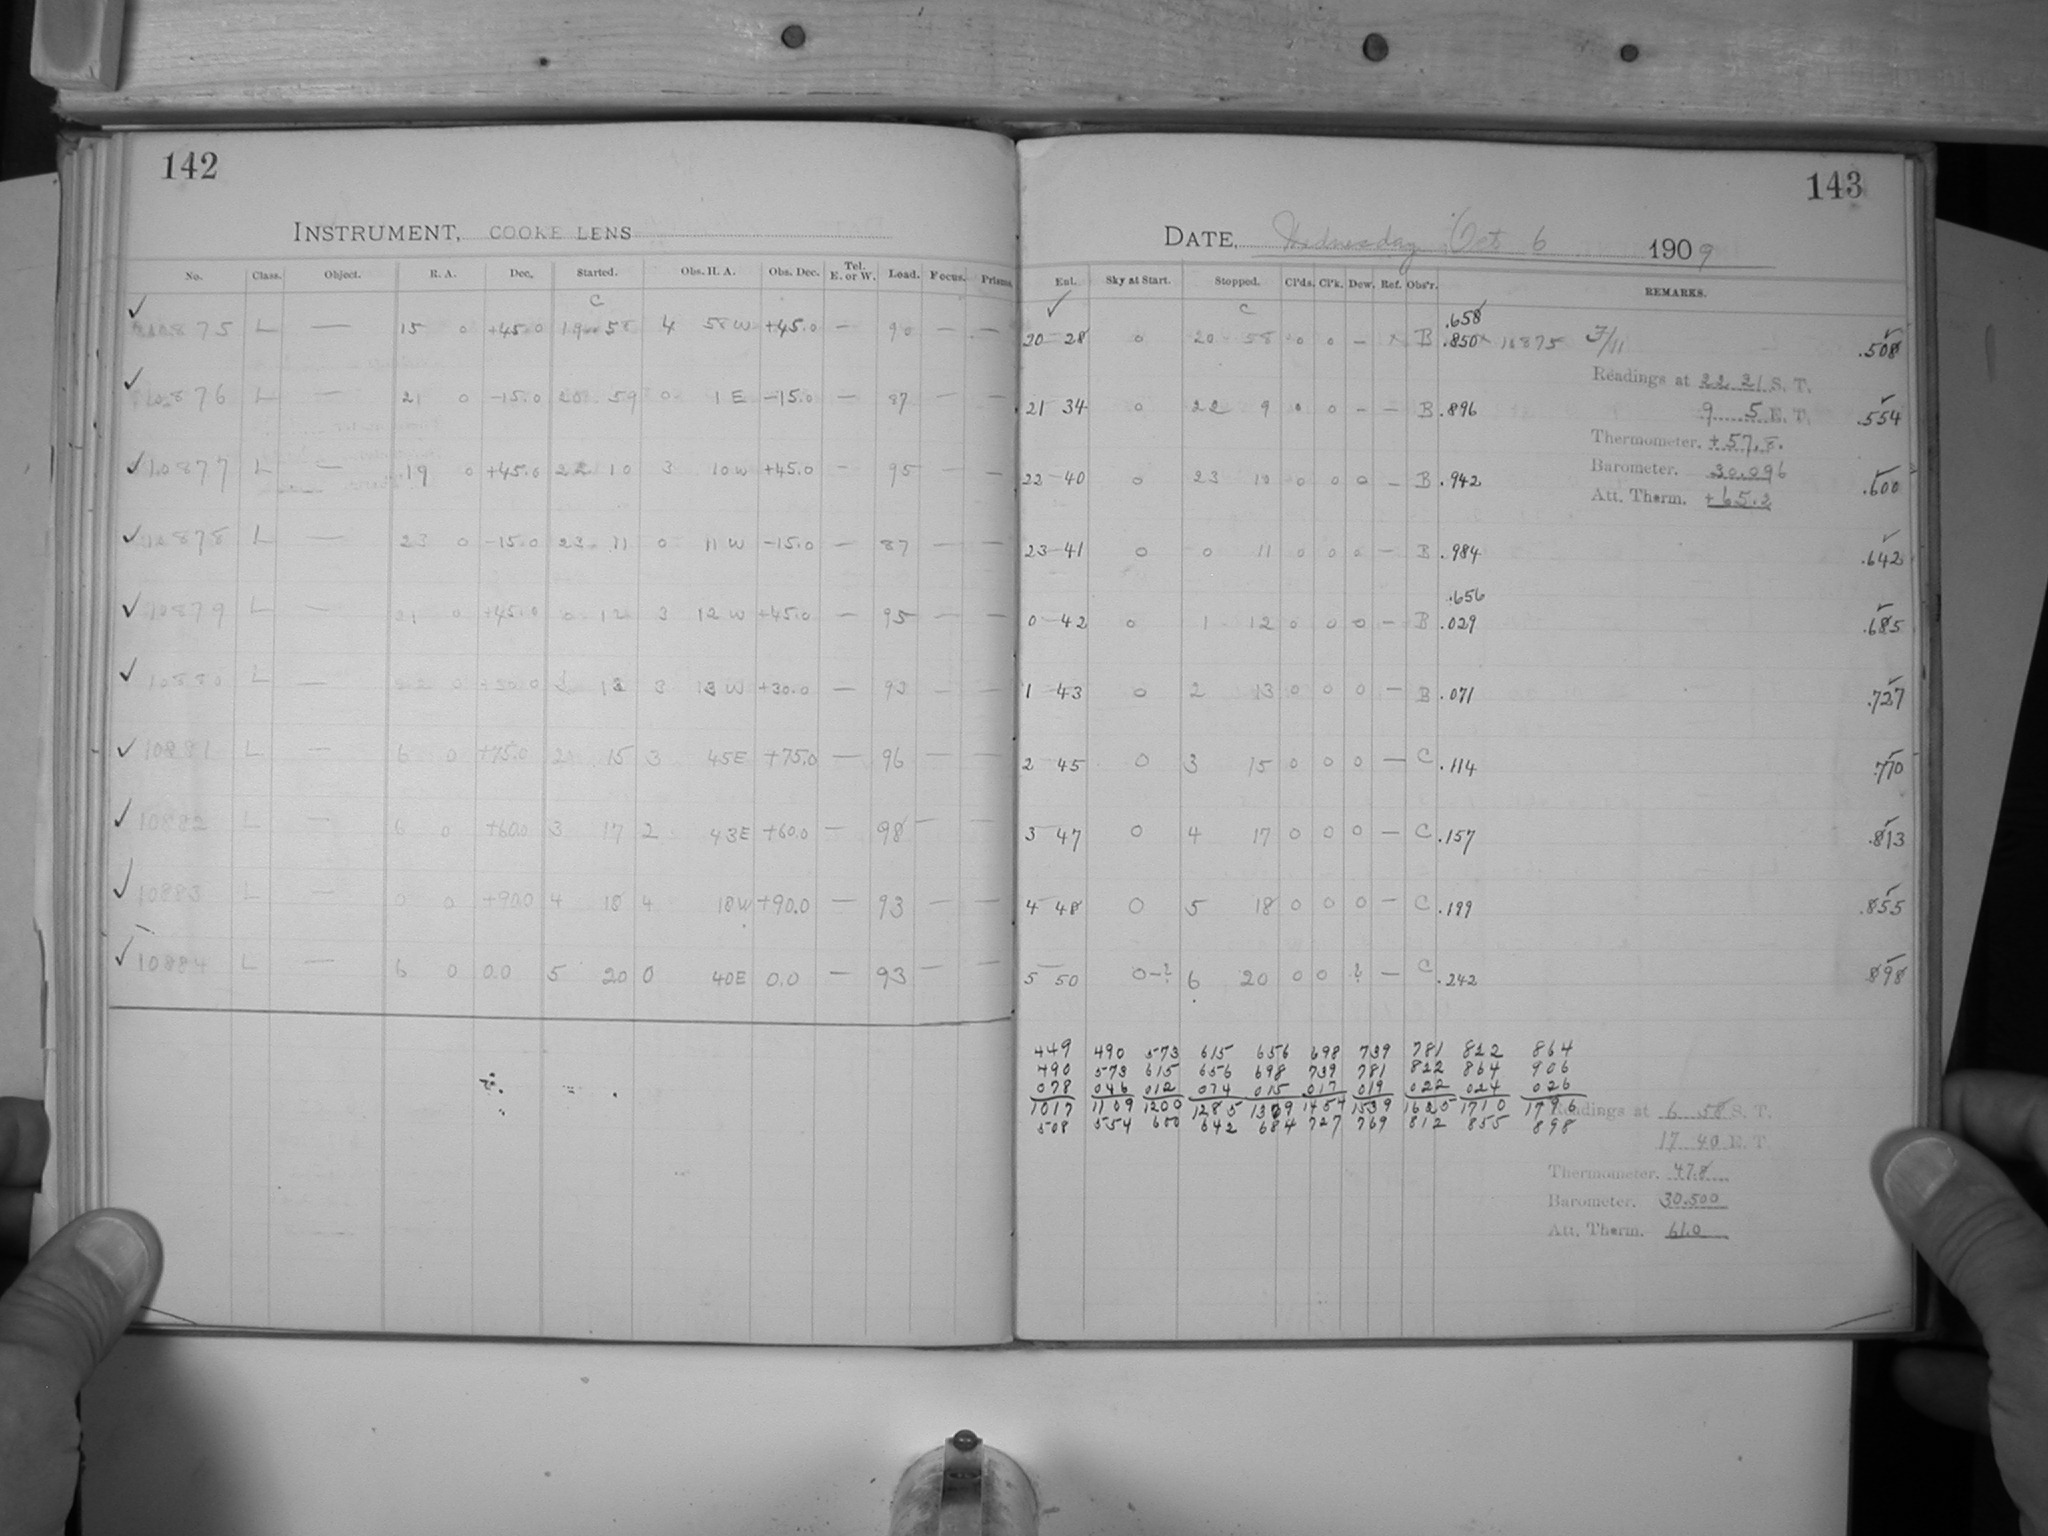 142
INSTRUMENT, COOKE LENS
No. Class. Object. R. A. Dec. Started. Obs. H. A. Obs. Dec. Tel. E. or W. Load. Focus. Prisms.
C
✓ 10875 L — 15 0 +45.0 19 58 4 58 W +45.0 — 90 — —
✓ 10876 L — 21 0 -15.0 20 59 0 1 E -15.0 — 87 — —
✓ 10877 L — 19 0 +45.0 22 10 3 10 W +45.0 — 95 — —
✓ 10878 L — 23 0 -15.0 23 11 0 11 W -15.0 — 87 — —
✓ 10879 L — 21 0 +45.0 0 12 3 12 W +45.0 — 95 — —
✓ 10880 L — 22 0 +30.0 1 13 3 13 W +30.0 — 93 — —
✓ 10881 L — 6 0 +75.0 2 15 3 45 E +75.0 — 96 — —
✓ 10882 L — 6 0 +60.0 3 17 2 43 E +60.0 — 98 — —
✓ 10883 L — 0 0 +90.0 4 18 4 18 W +90.0 — 93 — —
✓ 10884 L — 6 0 0.0 5 20 0 40 E 0.0 — 93 — —
143
DATE, Wednesday Oct 6 1909
Ent. Sky at Start. Stopped. Cl'ds. Cl'k. Dew. Ref. Obs'r. REMARKS.
✓ C .658
20 28 0 20 58 0 0 — × B .850 × 10875 F/11 .508
Readings at 22 21 S. T.
21 34 0 22 9 0 0 — — B .896 9 5 E. T. .554
Thermometer. +57.8
Barometer. 30.096
22 40 0 23 10 0 0 0 — B .942 .600
Att. Therm. +65.2
23 41 0 0 11 0 0 0 — B .984 .642
.656
0 42 0 1 12 0 0 0 — B .029 .685
1 43 0 2 13 0 0 0 — B .071 .727
2 45 0 3 15 0 0 0 — C .114 .770
3 47 0 4 17 0 0 0 — C .157 .813
4 48 0 5 18 0 0 0 — C .199 .855
5 50 0-? 6 20 0 0 ? — C .242 .898
449 490 573 615 656 698 739 781 822 864
490 573 615 656 698 739 781 822 864 906
078 046 012 014 015 017 019 022 024 026
1017 1109 1200 1285 1369 1454 1539 1625 1710 1796
508 554 600 642 684 727 769 812 855 898
Readings at 6 58 S. T.
17 40 E. T.
Thermometer. 47.8
Barometer. 30.500
Att. Therm. 61.0